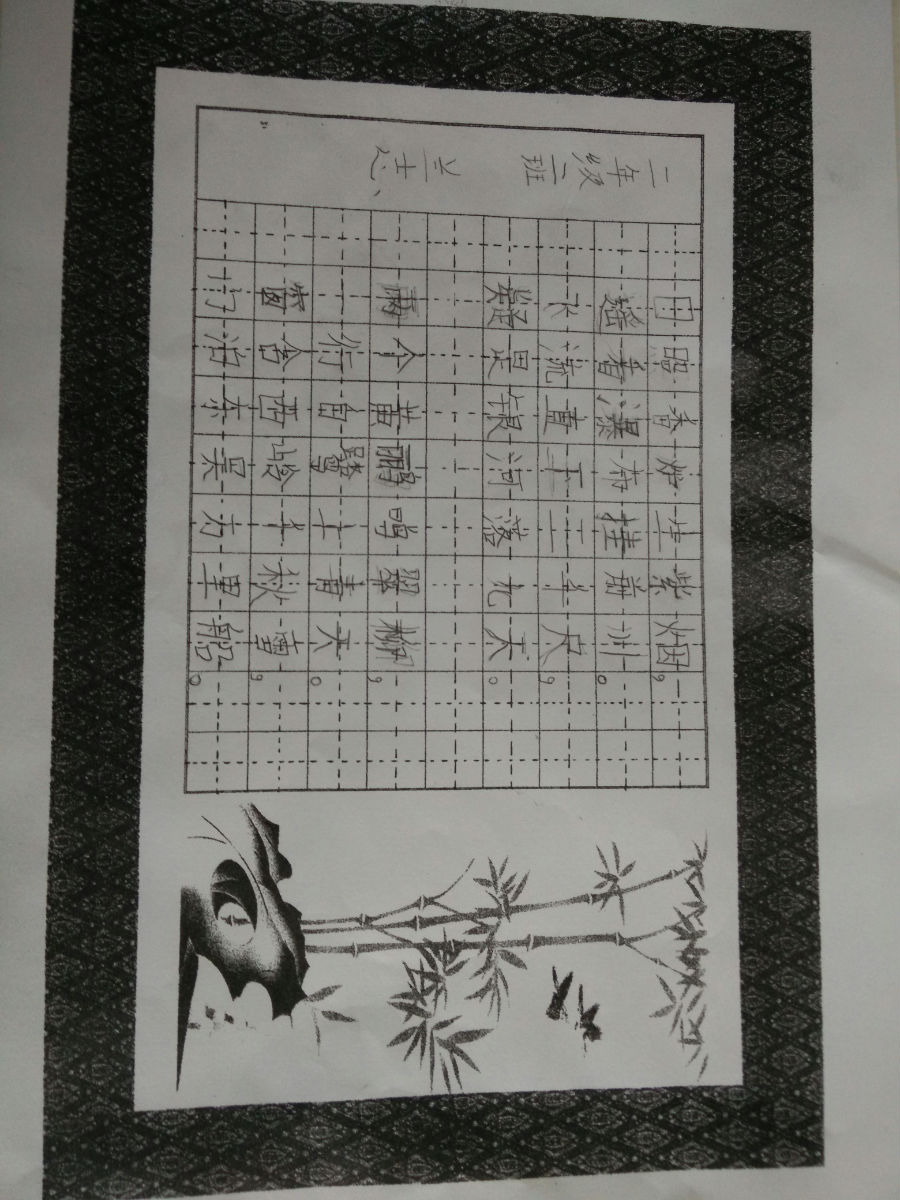 二年级二班
日照香炉生紫烟，
遥看瀑布挂前川。
水流直下三千尺，
疑是银河落九天。
两个黄鹂鸣翠柳，
一行白鹭上青天。
窗含西岭千秋雪，
门泊东吴万里船。